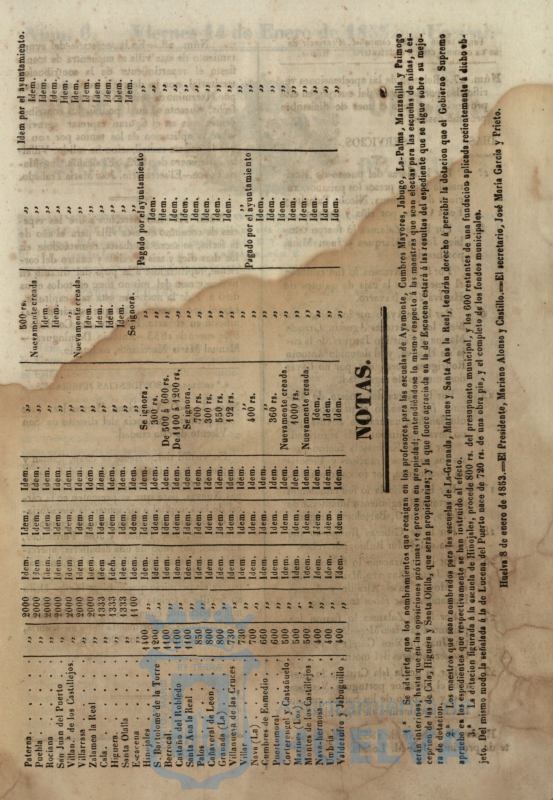 Paterna. ,, 2000 Idem. Idem. Idem. ,, 500 rs. ,, Idem por el ayuntamiento.
Puebla ,, 2000 Idem Idem. Idem. ,, Nuevamente creada ,, Idem.
Rociana ,, 2000 Idem. Idem. Idem. ,, Idem ,, Idem.
San Juan del Puerto ,, 2000 Idem. Idem. Idem. ,, Idem. ,, Idem.
Villan.ª de los Castillejos. ,, 2000 Idem. Idem. Idem. ,, ,, ,, Idem.
Villarrasa ,, 2000 Idem. Idem. Idem. ,, Nuevamente creada. ,, Idem.
Zalamea la Real ,, 2000 Idem. Idem. Idem. ,, Idem. ,, Idem.
Cala. ,, 1333 Idem. Idem. Idem. ,, Idem. ,, Idem.
Higuera. ,, 1333 Idem. Idem. Idem. ,, Idem. ,, Idem.
Santa Olalla ,, 1333 Idem. Idem. Idem. ,, Idem. ,, Idem.
Escacena ,, 1100 Idem. Idem. Idem. ,, Se ignora. ,, Idem.
Hinojales 1100 ,, Idem. Idem. Idem. Se ignora. ,, Pagado por el ayuntamiento ,,
S. Bartolomé de la Torre 1200 ,, Idem. Idem. Idem. 300 rs. ,, Idem. ,,
Berrocal 1100 ,, Idem. Idem. Idem. De 500 á 600 rs. ,, Idem. ,,
Castaño del Robledo 1100 ,, Idem. Idem. Idem. De 1100 á 1200 rs. ,, Idem. ,,
Santa Ana la Real 1100 ,, Idem. Idem. Idem. Se ignora. ,, Idem. ,,
Palos 850 ,, Idem. Idem. Idem. 700 rs. ,, Idem. ,,
Cañaveral de Leon. 800 ,, Idem. Idem. Idem. 300 rs. ,, Idem. ,,
Granada (La) 800 ,, Idem. Idem. Idem. 550 rs. ,, Idem. ,,
Villanueva de las Cruces 730 ,, Idem. Idem. Idem. 192 rs. ,, Idem. ,,
Villar 730 ,, Idem. Idem. Idem. ,, ,, ,, ,,
Nava (La) 700 ,, Idem. Idem. Idem. 400 rs. ,, Pagado por el ayuntamiento ,,
Cumbres de Enmedio. 660 ,, Idem. Idem. Idem. ,, ,, Idem. ,,
Puertomoral 600 ,, Idem. Idem. Idem. 360 rs. ,, Idem. ,,
Corterrangel y Castañuelo. 500 ,, Idem. Idem. Idem. Nuevamente creada. ,, Idem. ,,
Marines (Los). 500 ,, Idem. Idem. Idem. 1000 rs. ,, Idem. ,,
Montes los Castillejos 500 ,, Idem. Idem. Idem. Nuevamente creada. ,, Idem. ,,
Nava-hermosa. 400 ,, Idem. Idem. Idem. Idem. ,, Idem. ,,
Umbria. 400 ,, Idem. Idem. Idem. Idem. ,, Idem. ,,
Valdezufre y Jabuguillo 400 ,, Idem. Idem. Idem. Idem. ,, Idem. ,,
NOTAS.
1.ª Se advierte que los nombramientos que recaigan en los profesores para las escuelas de Ayamonte, Cumbres Mayores, Jabugo, La-Palma, Manzanilla y Paimogo
serán interinos, hasta que en las oposiciones próximas se provean en propiedad; entendiéndose lo mismo respecto á las maestras que sean electas para las escuelas de niñas, á es-
cepcion de las de Cala, Higuera y Santa Olalla, que serán propietarias; y la que fuere agraciada en la de Escacena estará á las resultas del espediente que se sigue sobre su mejo-
ra de dotacion.
2.ª Los maestros que sean nombrados para las escuelas de La-Granada, Marines y Santa Ana la Real, tendrán derecho á percibir la dotacion que el Gobierno Supremo
apruebe en los espedientes que respectivamente se han instruido al efecto.
3.ª La dotacion figurada á la escuela de Hinojales, procede 800 rs. del presupuesto municipal, y los 600 restantes de una fundacion aplicada recientemente á dicho ob-
jeto. Del mismo modo la señalada á la de Lucena del Puerto nace de 720 rs. de una obra pia, y el completo de los fondos municipales.
Huelva 8 de enero de 1853.—El Presidente, Mariano Alonso y Castillo.—El secretario, José Maria Garcia y Prieto.